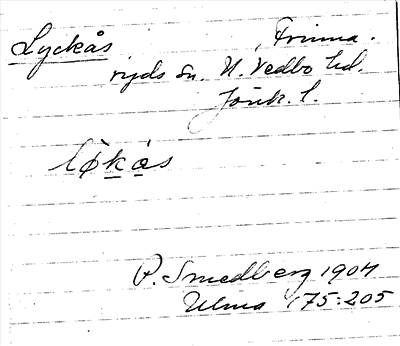 Lyckås, Frinna-
ryds sn. N. Vedbo hd.
Jönk. l.
løkås
P. Smedberg 1904
Ulma 175:205